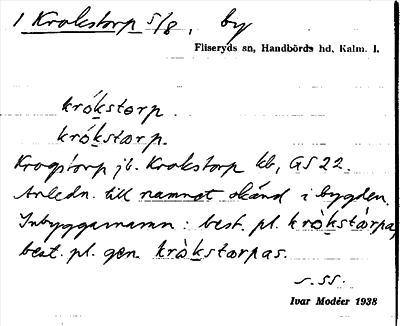 1 Krokstorp 5/8, by
Fliseryds sn, Handbörds hd, Kalm. l.
krókstorp.
krókstærp.
Krogstorp jb. Krokstorp kb, GS 22.
Anledn. till namnet okänd i bygden.
Inbyggarnamn: best. pl. kròkstàrpa,
best. pl. gen. kròkstærpas.
s. ss.
Ivar Modéer 1938